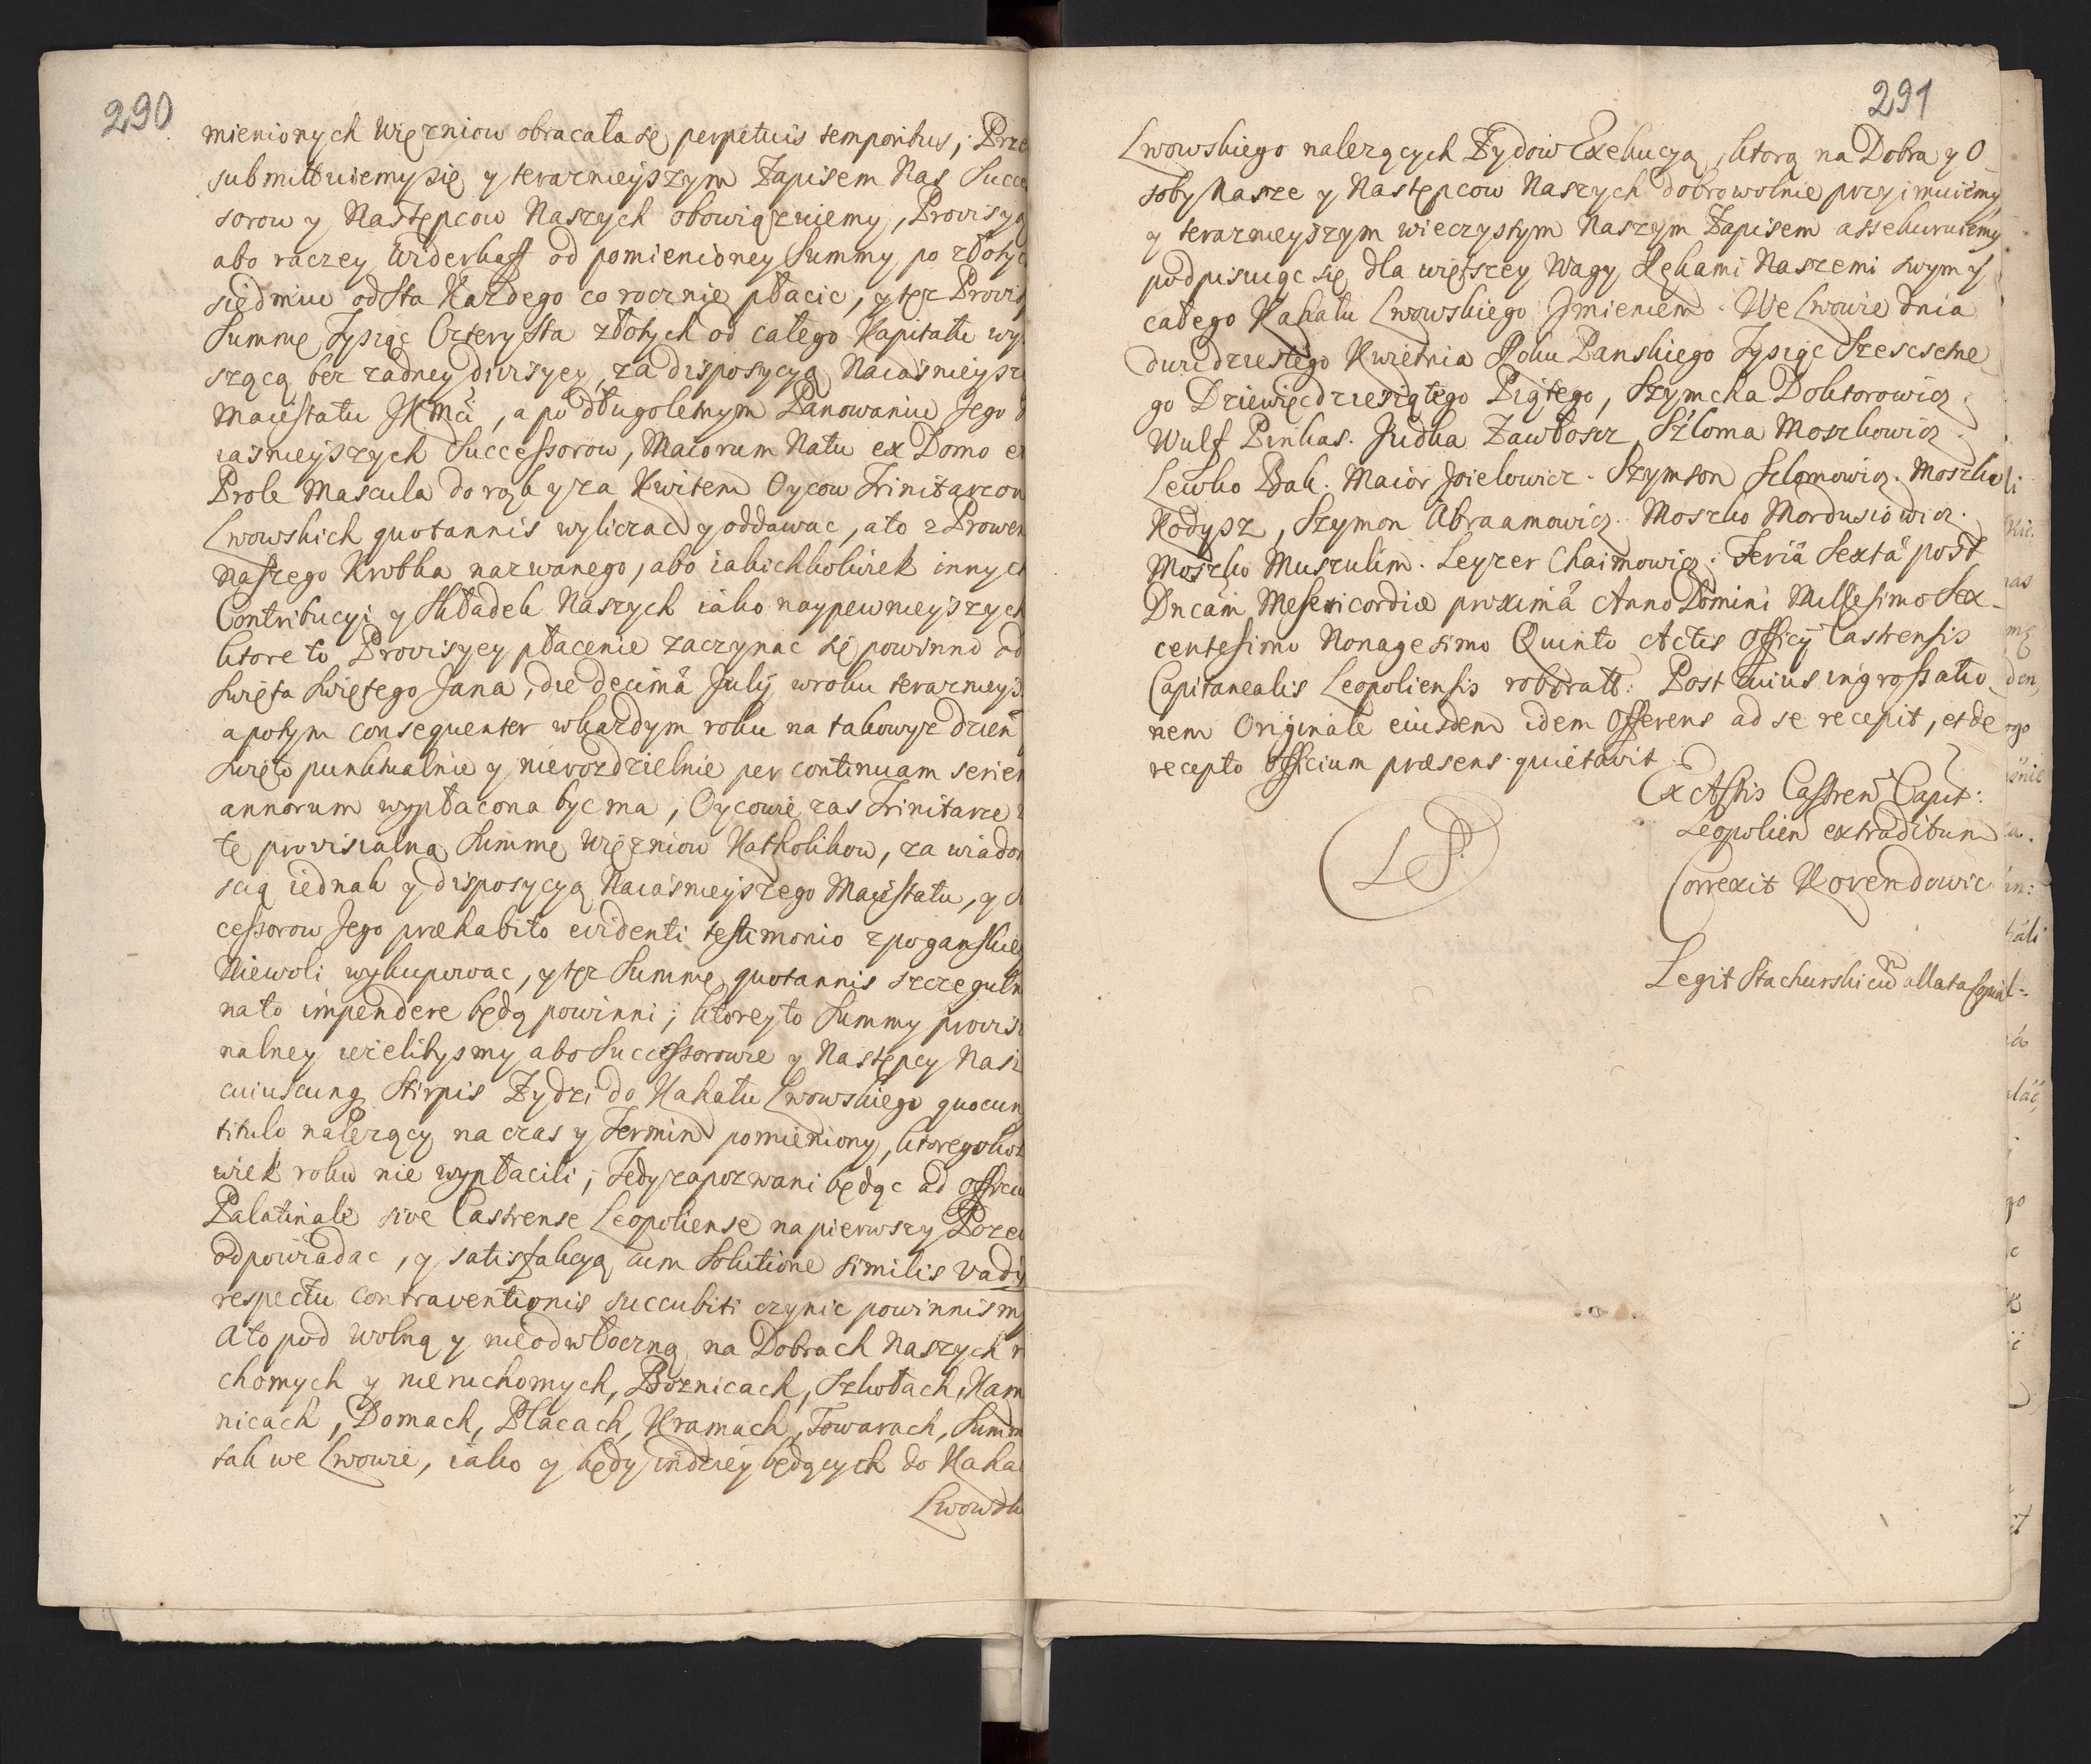 290
mienionych Więzniow obracała sę perpetuis temporibus; Prze
submittuiemy się y teraznieyszym Zapisem Nas Succe
sorow y Następcow Naszych obowiązuiemy, Provisyą
abo raczey Widerkaff od pomienioney Summy po złotyc
siedmiu od sta Kazdego corocznie płacic, y tęz Provis
Summę Tysiąc Czterysta złotych od całego Kapitału wy
szącą bez zadney divisyey, za disposycyą Naiasnieysz
Maiestatu JKMci, a po długoletnym Panowaniu Jego
iasnieyszych Successorow, Maiorum Natu ex Domo e
Prole Mascula do rąk y za Kwitem Oycow Trinitarzow
Lwowskich quotannis wyliczac y oddawac, a to z Prowen
Naszego Krobka nazwanego, abo iakichkolwiek innyc
Contribucyi y Składek Naszych iako naypewnieyszych
ktore to Provisyey płacenie zaczynac się powinno od
Swięta Swiętego Jana, die decimâ Julij w roku terazneys
a potym consequenter w kazdym roku na takowyz dzien
Swięto punktualnie y nierozdzielnie per continuam serien
annorum wypłacona byc ma, Oycowie zas Trinitarze
tę provisialną Summę Więzniow Katholikow, za wiadom
scią iednak y disposycyą Naiasnieyszego Maiestatu, y
cessorow Jego præhabito evidenti testimonio z poganskiey
Niewoli wykupowac, y tęz Summę quotannis szczeguln
na to impendere będą powinni; ktorey to Summy provis
nalney iezelibysmy abo Successorowie y Następcy Nasi
cuiuscunq Stirpis Zydzi do Kahału Lwowskiego quocun
titulo nalezący na czas y Termin pomieniony, ktoregokol
wiek roku nie wypłacili; Tedy zapozwani będąc ad Officiu
Palatinale sive Castrense Leopoliense na pierwszy Poze
odpowiadac, y satisfakcyą cum Solutione similis vadij
respectu contraventionis succubiti czynic powinnismy
A to pod wolną y nieodwłoczną na Dobrach Naszych r
chomych y nieruchomych, Boznicach, Szkołach, Kam
nicach, Domach, Placach, Kramach, Towarach, Summ
tak we Lwowie, iako y kędy indziey będących do Kaha
Lwowsk
291
Lwowskiego nalezących Zydow Exekucyą, ktorą na Dobra y O
soby Nasze y Następcow Naszych dobrowolnie przyimuiemy
y terazneyszym wieczystym Naszym Zapisem assekuruiemy
podpisuiąc się dla większey Wagy Rękami Naszemi swym y
całego Kahału Lwowskiego Jmieniem. We Lwowie dnia
dwudziestego Kwietnia Roku Panskiego Tysiąc Szescsetne
go Dziewięcdziesiątego Piątego, Szymcha Doktorowicz
Wulf Pinkas. Judka Zawłosz Szloma Moszkowicz
Lewko Bak. Maior Jzielowicz. Szymson Szlomowicz. Moszko
Kodysz, Szymon Abraamowicz. Moszko Mordusiowicz.
Moszko Muszulim. Leyzer Chaimowicz. Feriâ Sextâ post
Dncam Misericordiæ proximâ Anno Domini Millesimo Sex
centesimo Nonagesimo Quinto Actis Officij Castrensis
Capitanealis Leopoliensis roboratt: Post cuius ingrossatio
nem Originale eiusdem idem Offerens ad se recepit, et de
recepto Officium præsens quietavit.
Ex Actis Castren Capit:
Leopolien extraditum
LS.
Correxit Korendowic
Legit Stachurski cu allata